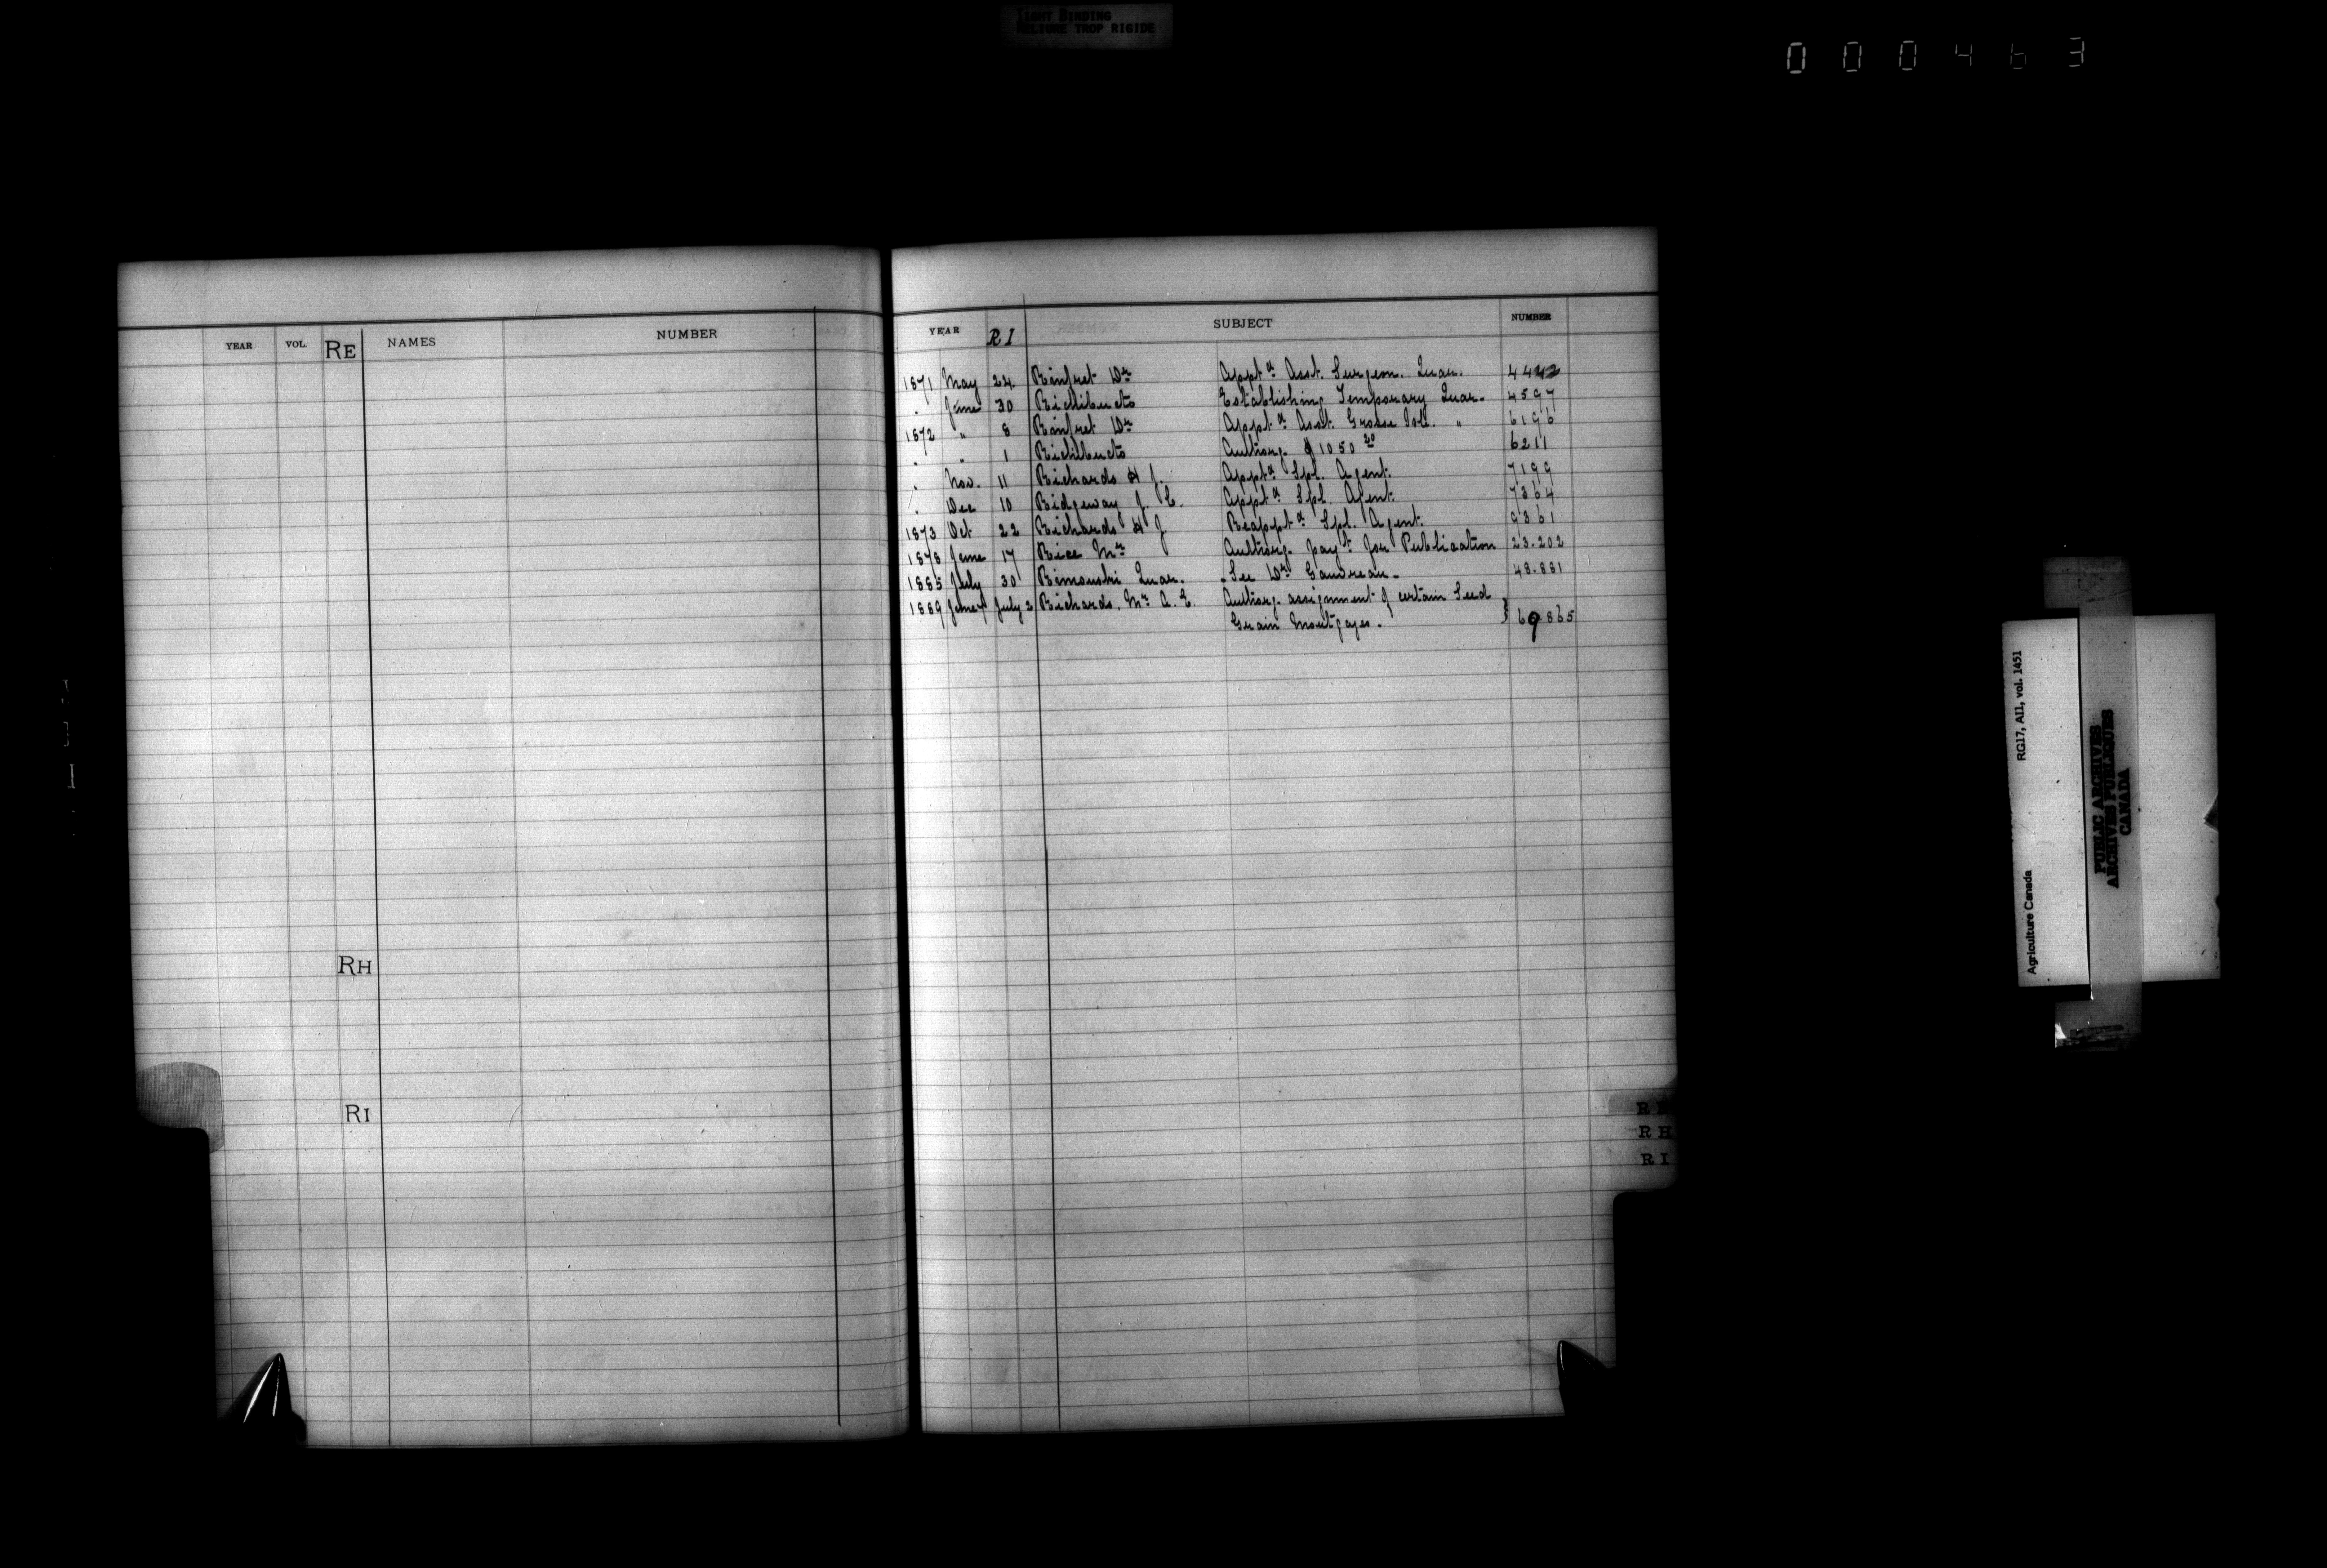 TIGHT BINDING
RELIURE TROP RIGIDE
000463
YEAR VOL. RE NAMES NUMBER
RH
RI
YEAR RI SUBJECT NUMBER
1871 May 24 Rinfret Dr Appt d Asst. Surgeon. Quar. 4442
" June 30 Richibucto Establishing Temporary Quar. 4597
1872 " 8 Rinfret Dr Appt d Asst. Grosse Isle. " 6196
" " 1 Richibucto Authorg. $1050 20 6211
" Nov. 11 Richards H J. Appt d Spl. Agent. 7199
" Dec 10 Ridgeway J. C. Appt d Spl. Agent. 7364
1873 Oct 22 Richards H J Reappt d Spl. Agent. 9361
1878 June 17 Rice Mr Authorg. payt. for Publication 23.202
1885 July 30 Rimouski Quar. - See Dr Gauvreau - 48.881
1889 July 2 Richards, Mr A. E. Authorg. assignment of certain Seed
Grain Mortgages. } 69865
RE
RH
RI
Agriculture Canada RG17, AI1, vol. 1451
PUBLIC ARCHIVES
ARCHIVES PUBLIQUES
CANADA